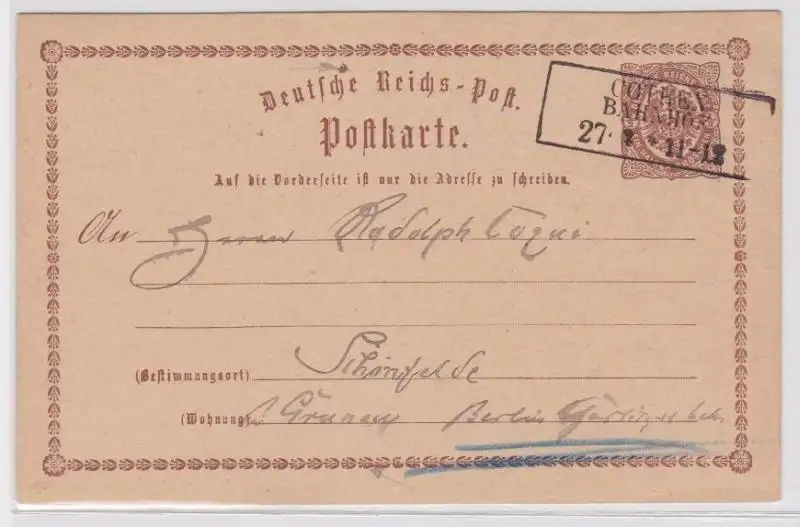 Deutsche Reichs-Post.
Postkarte.
COTHEN
BAHNHOF
27 11-12
Auf die Vorderseite ist nur die Adresse zu schreiben.
An Herrn Rudolph
(Bestimmungsort) Schönfelde
(Wohnung) Grunau Berlin Görlitzer bahn